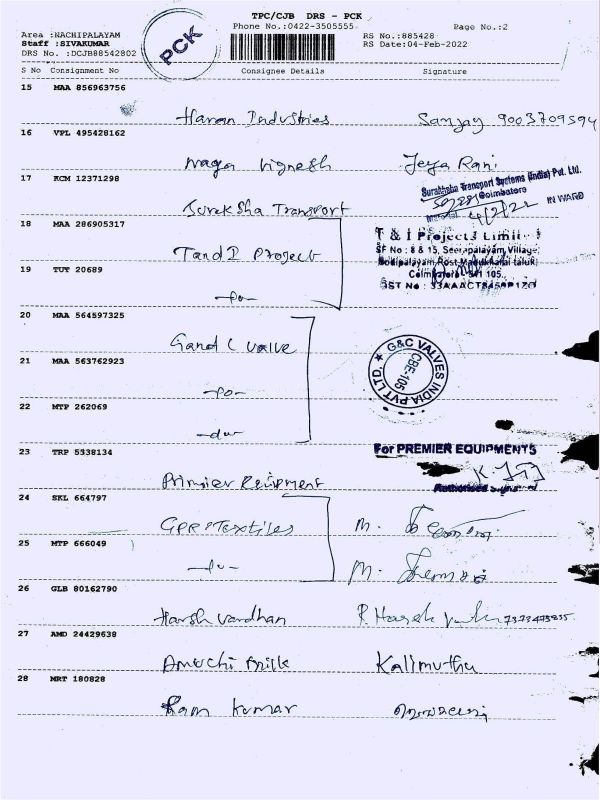 TPC/CJB DRS - PCK
Phone No.:0422-3505555
Page No.:2
Area :NACHIPALAYAM
Staff :SIVAKUMAR
DRS No. :DCJB88542802
PCK
RS No.:885428
RS Date:04-Feb-2022
S No Consignment No Consignee Details Signature
15 MAA 856963756
Haran Industries Sanjay 9003709594
16 VPL 495428162
Naga Vignesh Jeya Rani
17 KCM 12371298
Sureksha Transport
Suraksha Transport Systems (India) Pvt. Ltd.
Coimbatore
IN WARD
4/2/22
18 MAA 286905317
T and I Project
T & I Projects Limited
SF No : 8 & 15, Seerapalayam Village,
Coimbatore - 641 105.
19 TUT 20689
-Do-
20 MAA 564597325
G and C Valve
G&C VALVES INDIA PVT LTD.
CBE-105
21 MAA 563762923
-Do-
22 MTP 262069
-do-
23 TRP 5538134
For PREMIER EQUIPMENTS
Authorised Signatory
24 SKL 664797
GPR Textiles M.
25 MTP 666049
-do- M.
26 GLB 80162790
Harsh vardhan
27 AMD 24429638
Kalimuthu
28 MRT 180828
Ram kumar